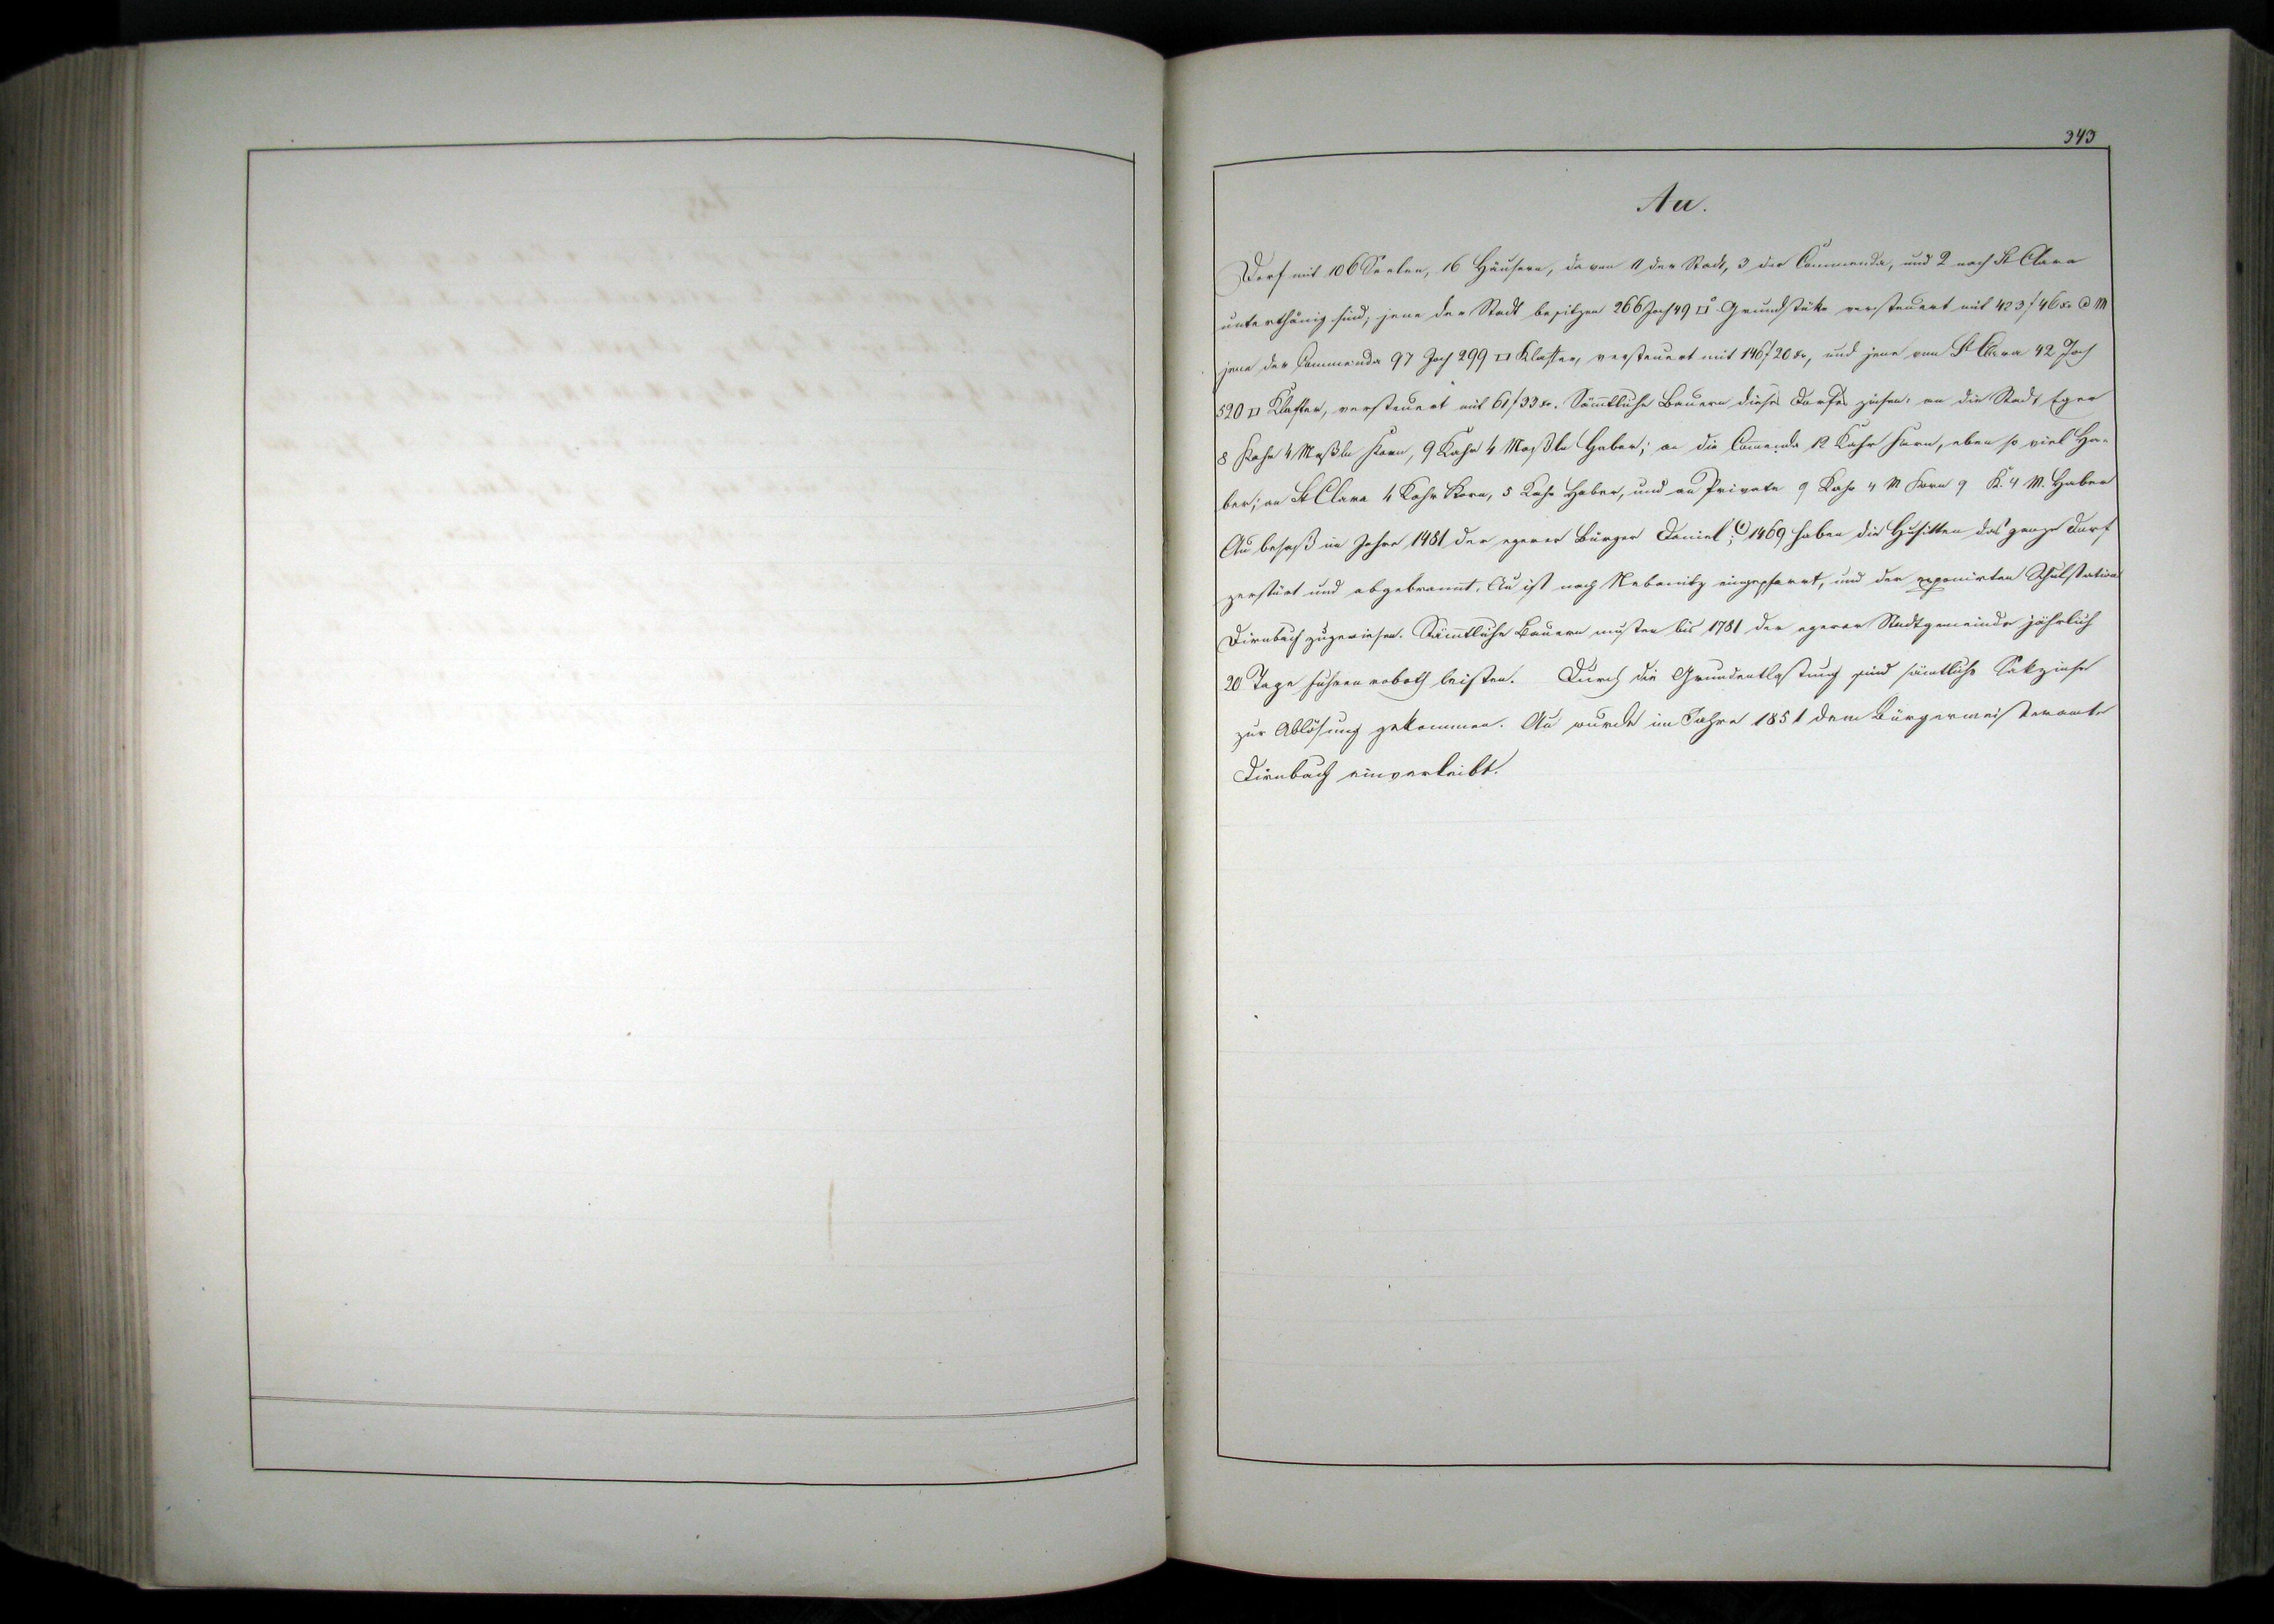 343
Au.
Dorf mit 106 Seelen, 16 Häusern, davon 11 der Stadt, 3 der Commenda, und 2 nach St Clara
unterthänig sind; jene der Stadt besitzen 266 Joch 49 □° Grundstüke versteuert mit 423 f 46 xr C M
jene der Commenda 97 Joch 299 □ Klafter, versteuert mit 146 f 20 xr, und jene von St Clara 42 Joch
520 □ Klafter, versteuert mit 61 f 33 xr. Sämtliche Bauern dieses Dorfes zinsen: an die Stadt Eger
8 Kahr 4 Maßln Korn, 9 Kahr 4 Maßln Haber; an die Commenda 12 Kahr Korn, eben so viel Ha-
ber; an St Clara 4 Kahr Korn, 5 Kahr Haber, und an Private 9 Kahr 4 M Korn 9 K. 4 M. Haber
Au besaß im Jahre 1481 der egerer Bürger Daniel; 1469 haben die Husitten das ganze Dorf
zerstört und abgebrannt. Au ist nach Nebanitz eingepfarrt, und der exponirten Schulstation
Dirnbach zugewiesen. Sämtliche Bauern musten bis 1781 der egerer Stadtgemeinde jährlich
20 Tage Fuhrenroboth leisten. Durch die Grundentlastung sind sämtliche Sakzinse
zur Ablösung gekommen. Au wurde im Jahre 1851 dem Bürgermeisteramte
Dirnbach einverleibt.